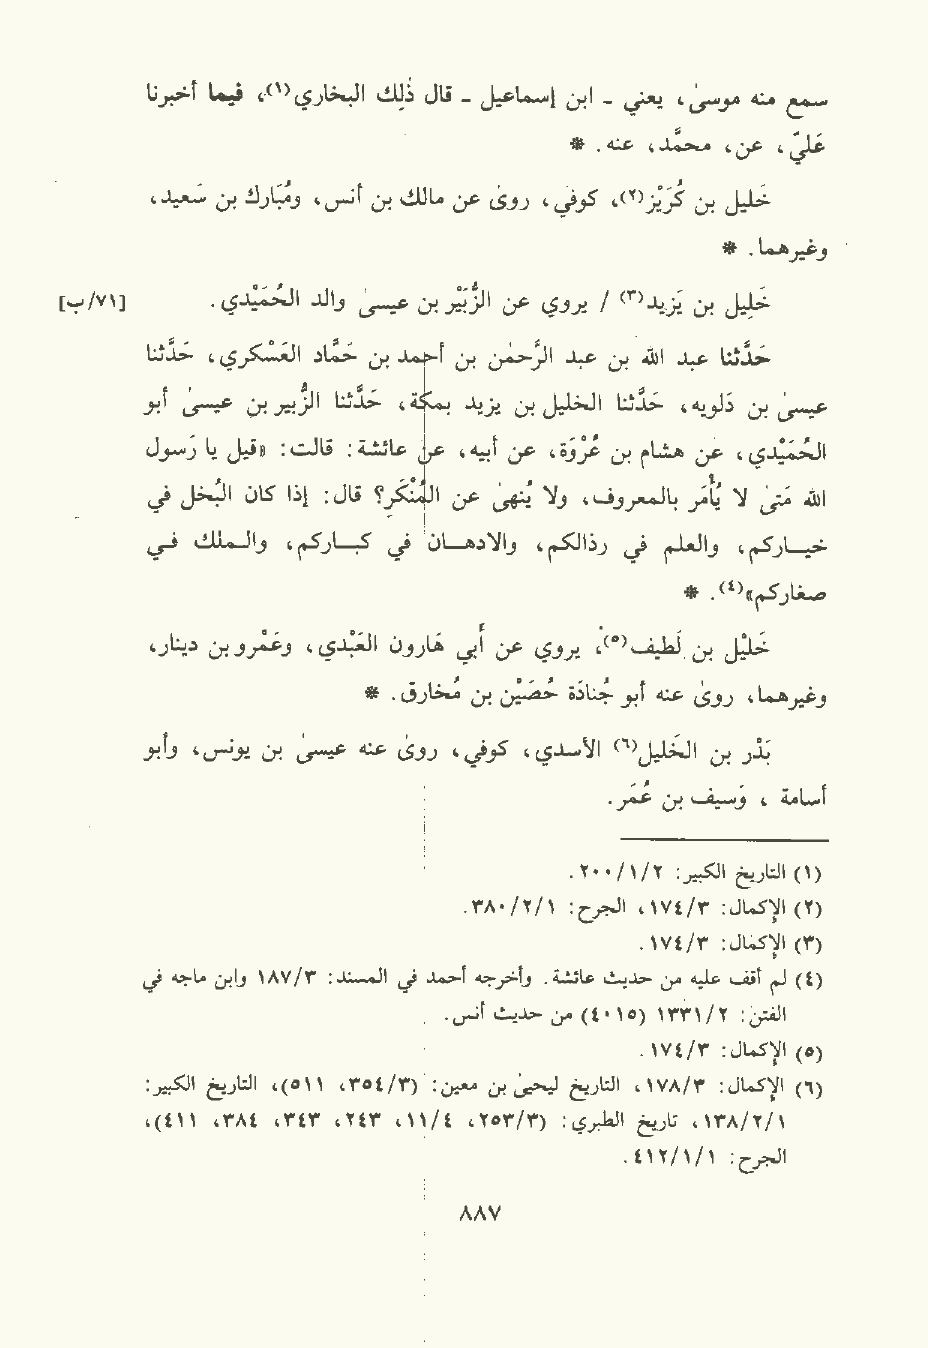 سمع منه موسىٰ، يعني - ابن إسماعيل - قال ذٰلِك البخاري(١)، فيما أخبرنا
عَليّ، عن، محمَّد، عنه. *
خَليل بن كُرَيْز(٢)، كوفي، روىٰ عن مالك بن أنس، ومُبَارك بن سَعيد،
وغيرهما. *
خَلِيل بن يَزيد(٣) / يروي عن الزُّبَيْر بن عيسىٰ والد الحُمَيْدي. [٧١/ب]
حَدَّثنا عبد الله بن عبد الرَّحمٰن بن أحمد بن حَمَّاد العَسْكري، حَدَّثنا
عيسىٰ بن دَلويه، حَدَّثنا الخليل بن يزيد بمكة، حَدَّثنا الزُّبير بن عيسىٰ أبو
الحُمَيْدي، عن هشام بن عُرْوَة، عن أبيه، عن عائشة: قالت: «قيل يا رَسول
الله مَتىٰ لا يُأْمَر بالمعروف، ولا يُنهىٰ عن المُنْكَر؟ قال: إذا كان البُخل في
خيــاركم، والعلم في رذالكم، والادهــان في كبــاركم، والملك في
صغاركم»(٤). *
خَلَيْل بن لَطيف(٥)، يروي عن أبي هَارون العَبْدي، وعَمْرو بن دينار،
وغيرهما، روىٰ عنه أبو جُنادَة حُصَيْن بن مُخارق. *
بَدْر بن الخَليل(٦) الأسدي، كوفي، روىٰ عنه عيسىٰ بن يونس، وأبو
أسامة ، وَسيف بن عُمَر.
(١) التاريخ الكبير: ٢٠٠/١/٢.
(٢) الإكمال: ١٧٤/٣، الجرح: ٣٨٠/٢/١.
(٣) الإكمال: ١٧٤/٣.
(٤) لم أقف عليه من حديث عائشة. وأخرجه أحمد في المسند: ١٨٧/٣ وابن ماجه في
الفتن: ١٣٣١/٢ (٤٠١٥) من حديث أنس.
(٥) الإكمال: ١٧٤/٣.
(٦) الإكمال: ١٧٨/٣، التاريخ ليحيىٰ بن معين: (٣٥٤/٣، ٥١١)، التاريخ الكبير:
١٣٨/٢/١، تاريخ الطبري: (٢٥٣/٣، ١١/٤، ٢٤٣، ٣٤٣، ٣٨٤، ٤١١)،
الجرح: ٤١٢/١/١.
٨٨٧